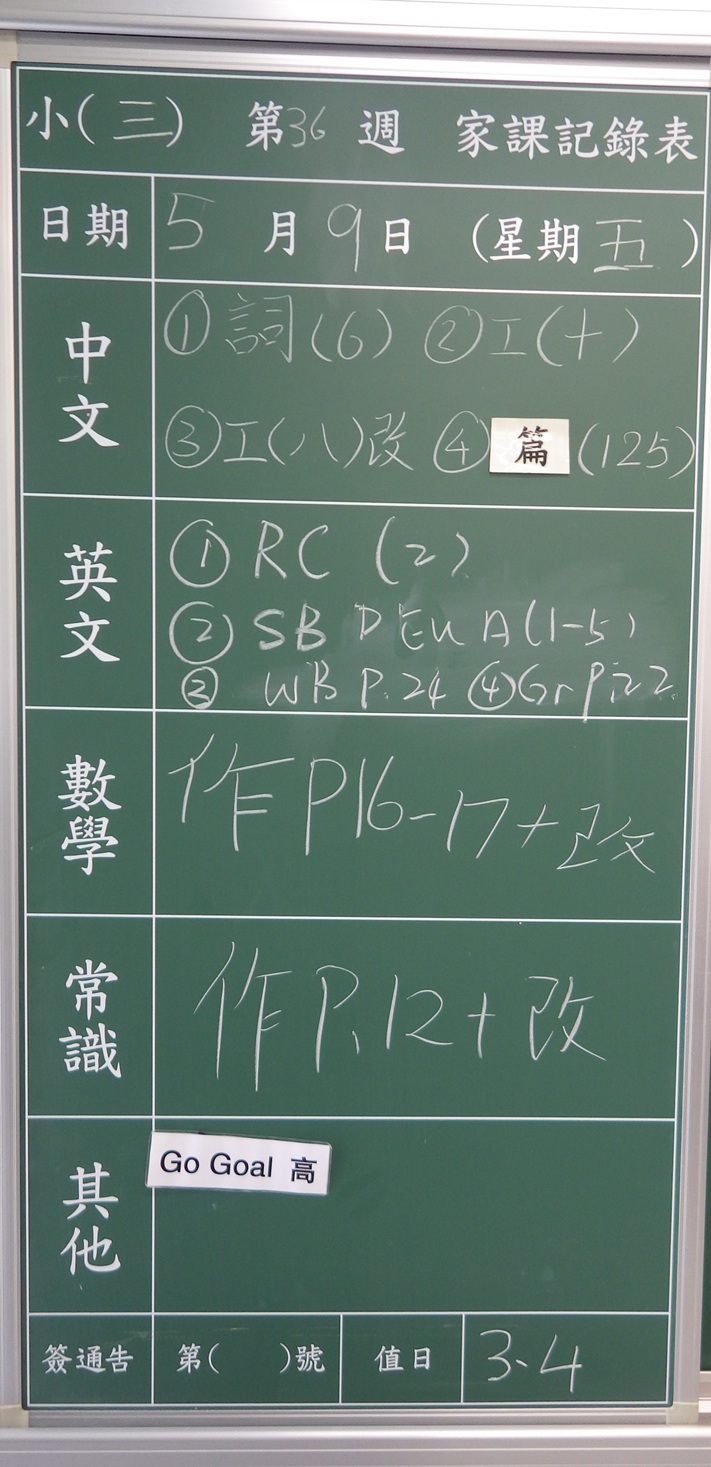 小(三) 第36週 家課記錄表
日期 5月9日 (星期五)
中文
①詞(6) ②工(十)
③工(八)改 ④篇(125)
英文
① RC (2)
② SB D EU A(1-5)
③ WB P.24 ④Gr P.22
數學
作P16-17+改
常識
作P.12+改
其他
Go Goal 高
簽通告 第( )號 值日 3、4